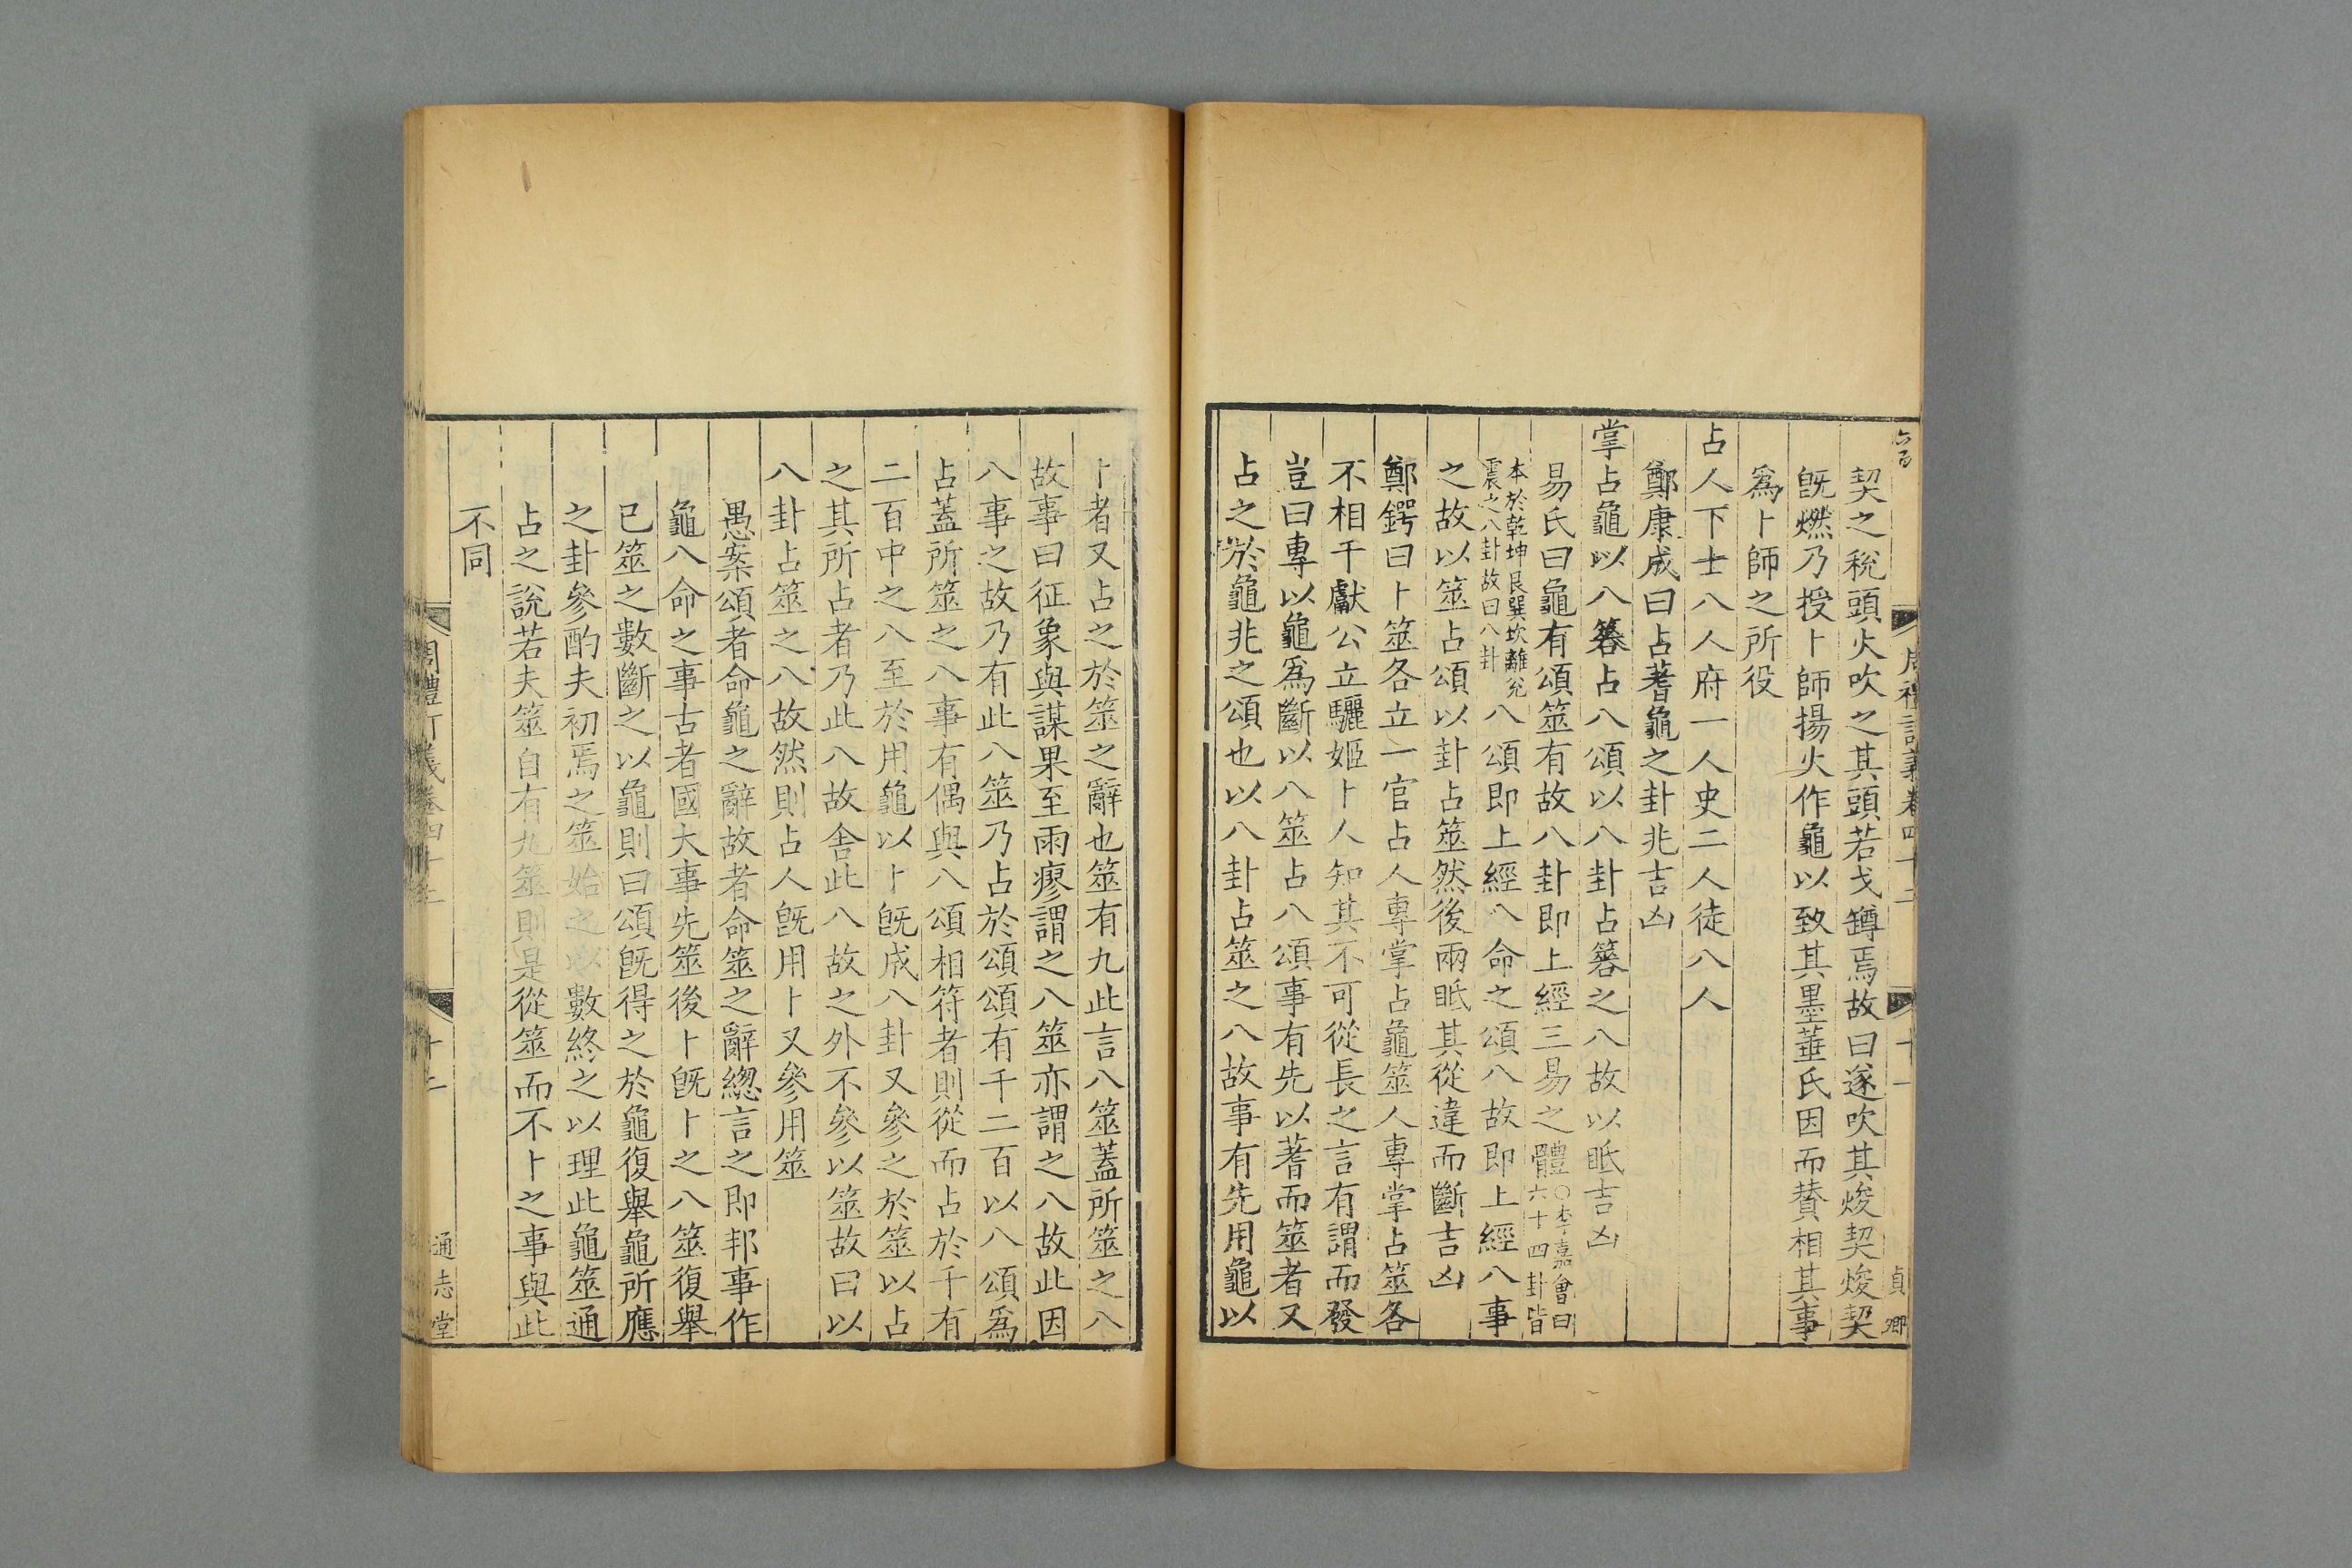 契之稅頭火吹之其頭若戈鐏焉故曰遂吹其焌契焌契
旣燃乃授卜師揚火作龜以致其墨菙氏因而賛相其事
爲卜師之所役
占人下士八人府一人史二人徒八人
鄭康成曰占蓍龜之卦兆吉凶
掌占龜以八簭占八頌以八卦占簭之八故以眡吉凶
易氏曰龜有頌筮有故八卦即上經三易之體○李嘉會曰六十四卦皆
本於乾坤艮巽坎離兊震之八卦故曰八卦八頌即上經八命之頌八故即上經八事
之故以筮占頌以卦占筮然後兩眡其從違而斷吉凶
鄭鍔曰卜筮各立一官占人專掌占龜筮人專掌占筮各
不相干獻公立驪姬卜人知其不可從長之言有謂而發
豈曰專以龜爲斷以八筮占八頌事有先以蓍而筮者又
占之於龜兆之頌也以八卦占筮之八故事有先用龜以
卜者又占之於筮之辭也筮有九此言八筮蓋所筮之八
故事曰征象與謀果至雨瘳謂之八筮亦謂之八故此因
八事之故乃有此八筮乃占於頌頌有千二百以八頌爲
占蓋所筮之八事有偶與八頌相符者則從而占於千有
二百中之八至於用龜以卜旣成八卦又參之於筮以占
之其所占者乃此八故舍此八故之外不參以筮故曰以
八卦占筮之八故然則占人旣用卜又參用筮
愚案頌者命龜之辭故者命筮之辭總言之即邦事作
龜八命之事古者國大事先筮後卜旣卜之八筮復舉
已筮之數斷之以龜則曰頌旣得之於龜復舉龜所應
之卦參酌夫初焉之筮始之以數終之以理此龜筮通
占之說若夫筮自有九筮則是從筮而不卜之事與此
不同
周禮訂義卷四十二
十二
通志堂